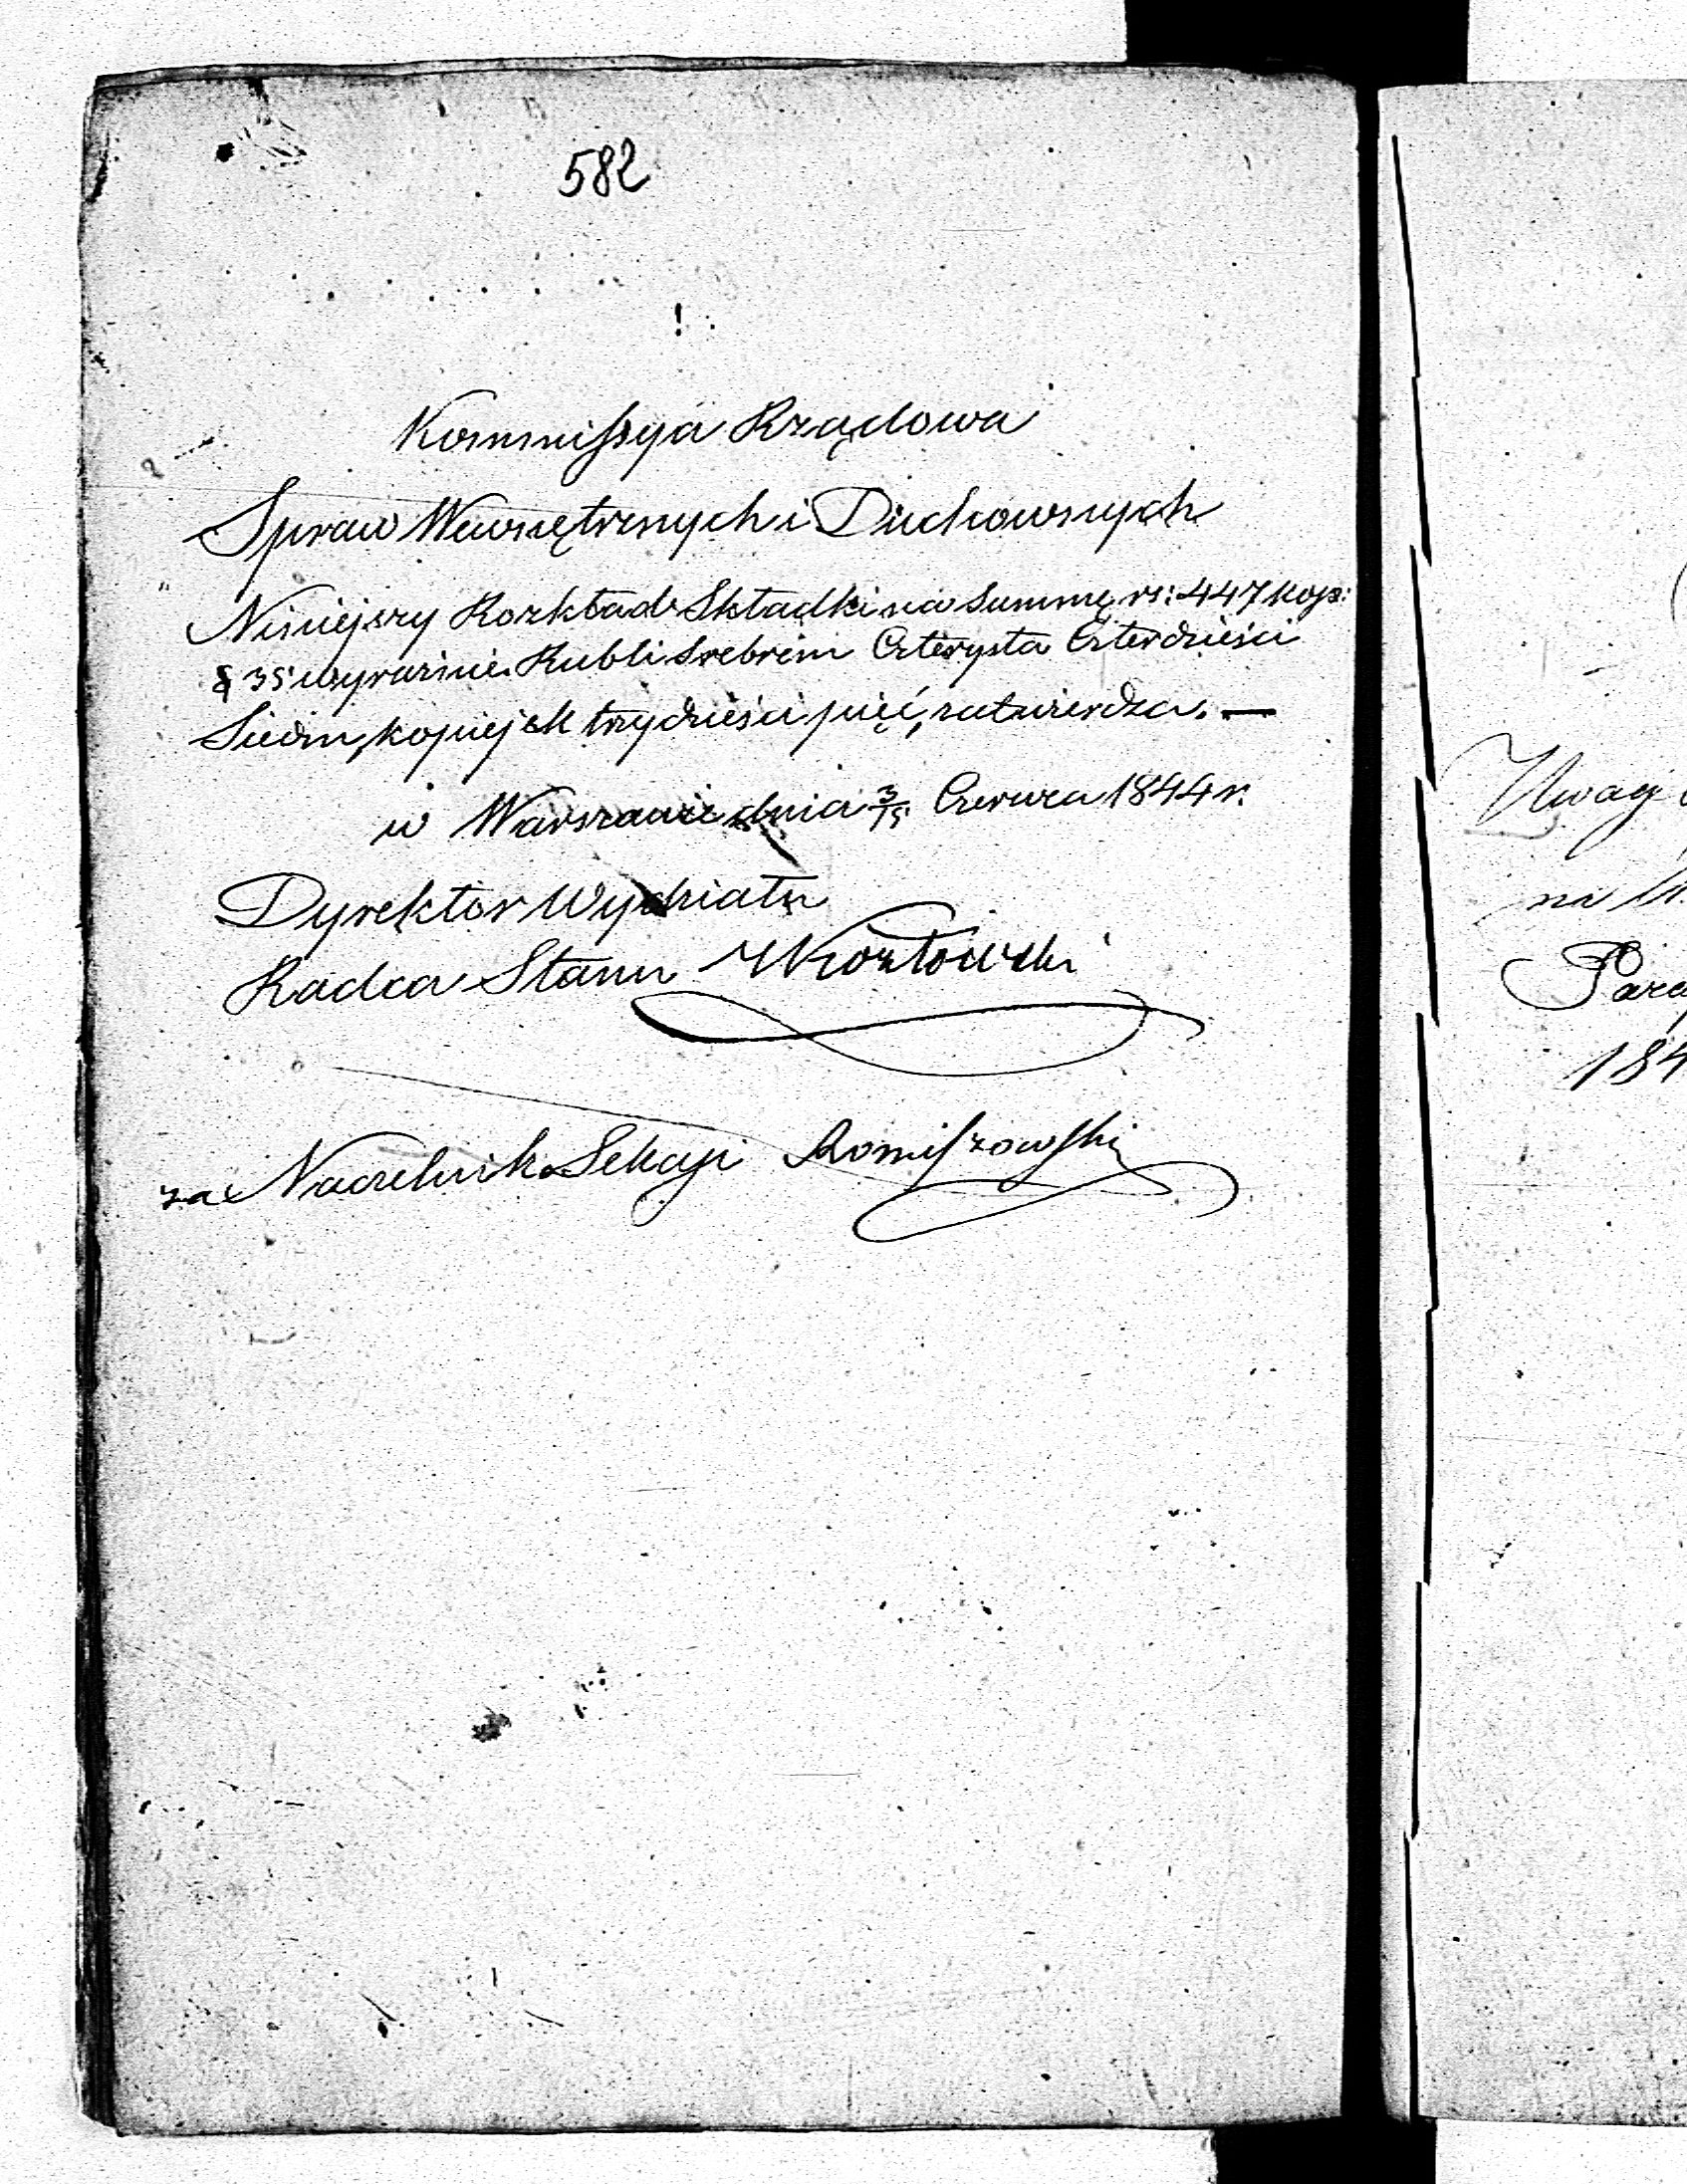 582
Kommissya Rządowa
Spraw Wewnętrznych i Duchownych
Niniejszy Rozkład Składki na Summę rs: 447 kop:
35 wyraźnie Rubli Srebrem Czterysta Czterdzieści
Siedm, kopiejek trzydzieści pięć, zatwierdza. —
w Warszawie dnia 3/15 Czerwca 1844 r.
Dyrektor Wydziału
Radca Stanu Kozłowski
za Naczelnika Sekcyi Romiszowski
Uwag
na
Para
184